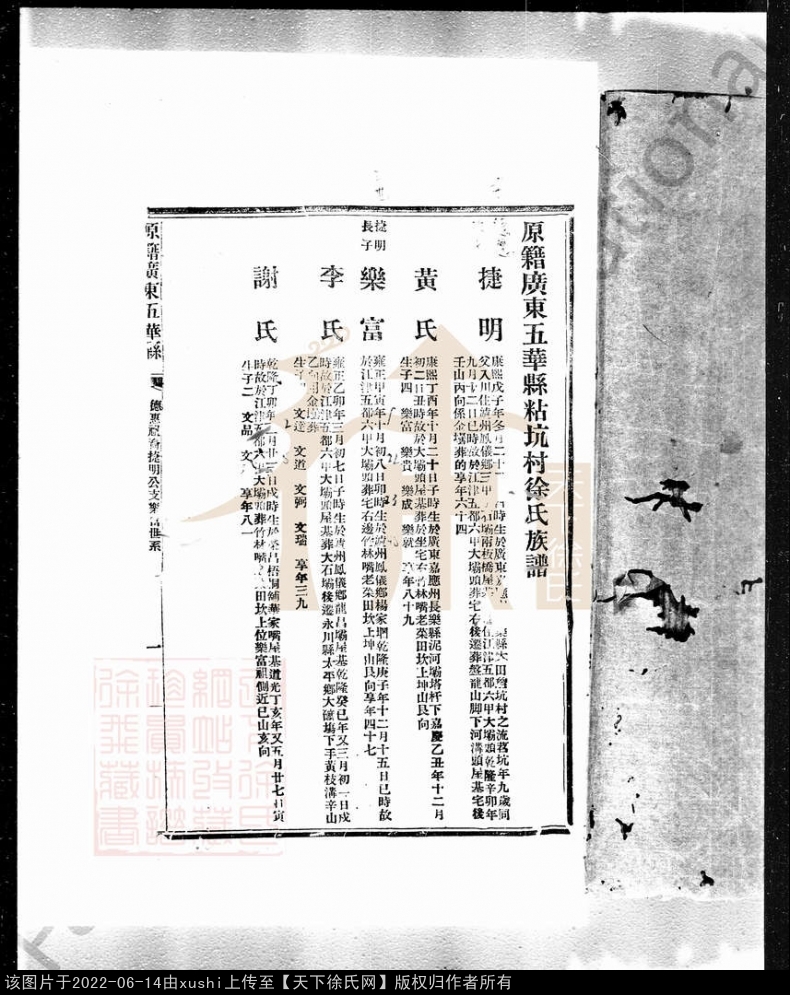 原籍廣東五華縣粘坑村徐氏族譜
捷明
康熙戊子年冬月二十
時生於廣東嘉應
樂縣大田
坑村之流
坑年九歲同
父入川住瀘州鳳儀鄉三甲
石壩兩板橋屋基
住江津五都六甲大壩頭乾隆辛卯年
九月十二日巳時故於江津五都六甲大壩頭葬宅右後遷葬盤龍山脚下河溝頭屋基宅後
壬山丙向係金塲葬的享年六十四
黃氏
康熙丁酉年十月二十日子時生於廣東嘉應州長樂縣泥河壩塔杆下嘉慶乙丑年十二月
初二日丑時故於大壩頭屋基葬於坐宅右
竹林嘴老菜田坎上坤山艮向
生子四 樂富 樂貴 樂成 樂就 享年八十九
捷明
長子
樂富
雍正甲寅年十月初八日卯時生於瀘州鳳儀鄉楊家
乾隆庚子年十二月十五日巳時故
於江津五都六甲大壩頭葬宅右邊竹林嘴老菜田坎上坤山艮向享年四十七
李氏
雍正乙卯年三月初七日子時生於瀘州鳳儀鄉龍昌壩屋基乾隆癸巳年又三月初一日戌
時故於江津五都六甲大壩頭屋基葬大石壩後遷永川縣太平鄉大
塆下手黃枝溝辛山
乙向
金塲葬
生子
文達 文道 文弼 文瑞 享年三九
謝氏
乾隆丁卯年
月廿三日戌時生於榮昌梧桐舖華家嘴屋基道光丁亥年又五月廿七日寅
時故於江津五都六甲大壩頭葬竹林嘴
田坎上位樂富祖側近巳山亥向
生子二 文品 文
享年八一
原籍廣東五華縣
德惠
捷明公支樂富世系
一
该图片于2022-06-14由xushi上传至【天下徐氏网】版权归作者所有